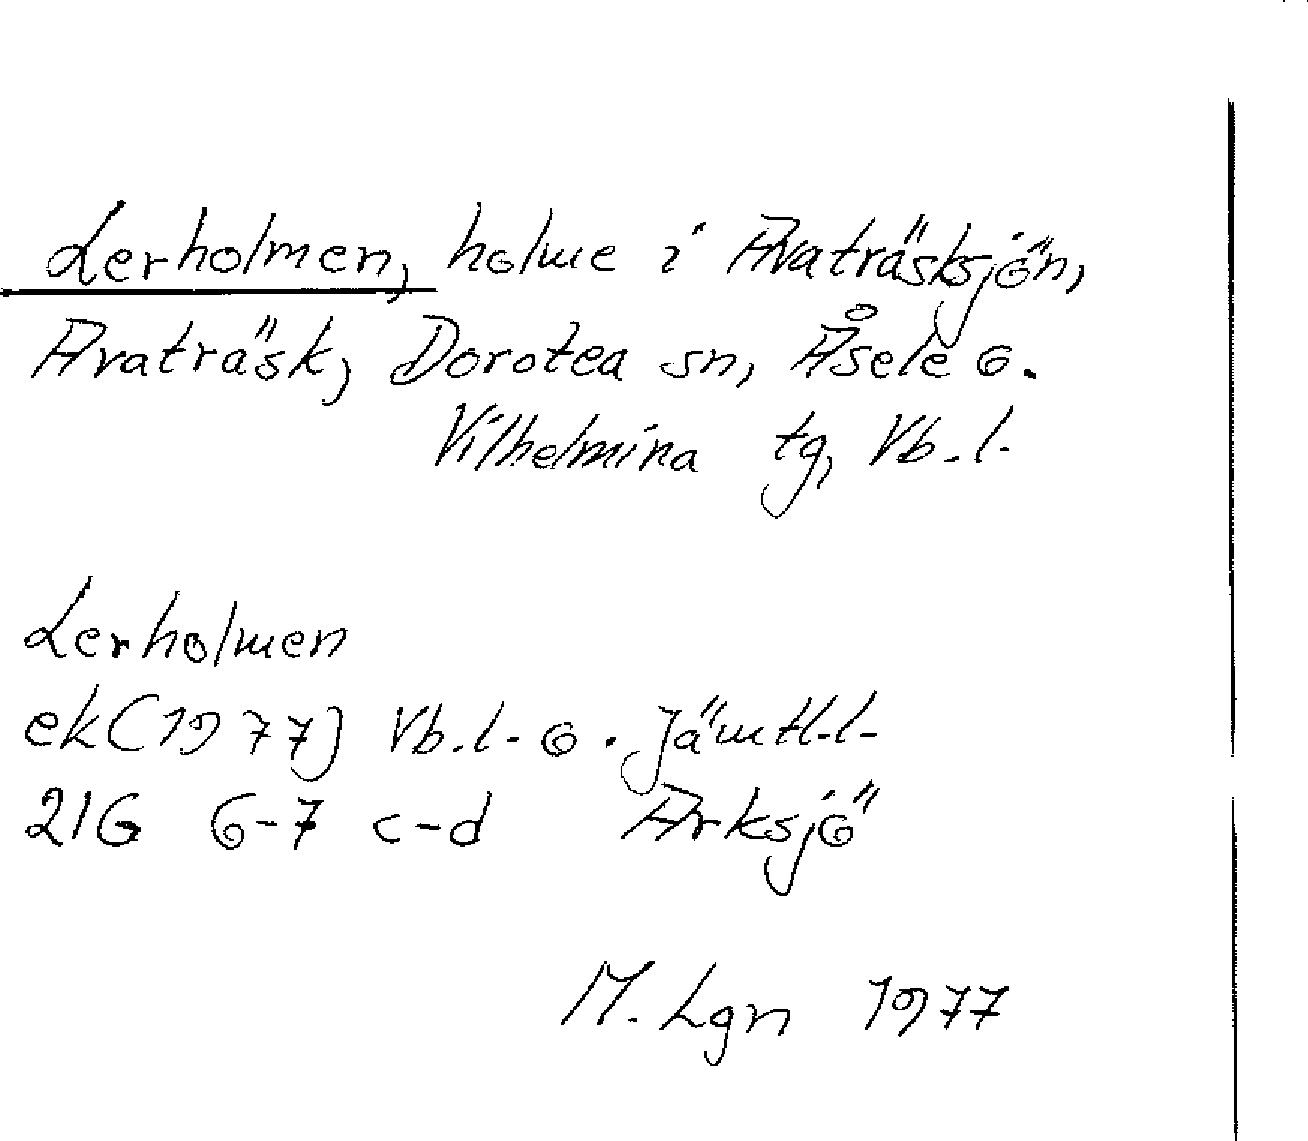 Lerholmen, holme i Avaträsksjön,
Avaträsk, Dorotea sn, Åsele o.
Vilhelmina tg, Vb. l.
Lerholmen
ek (1977) Vb. l. o. Jämtl. l.
21G 6-7 c-d Arksjö
M. Lgn 1977